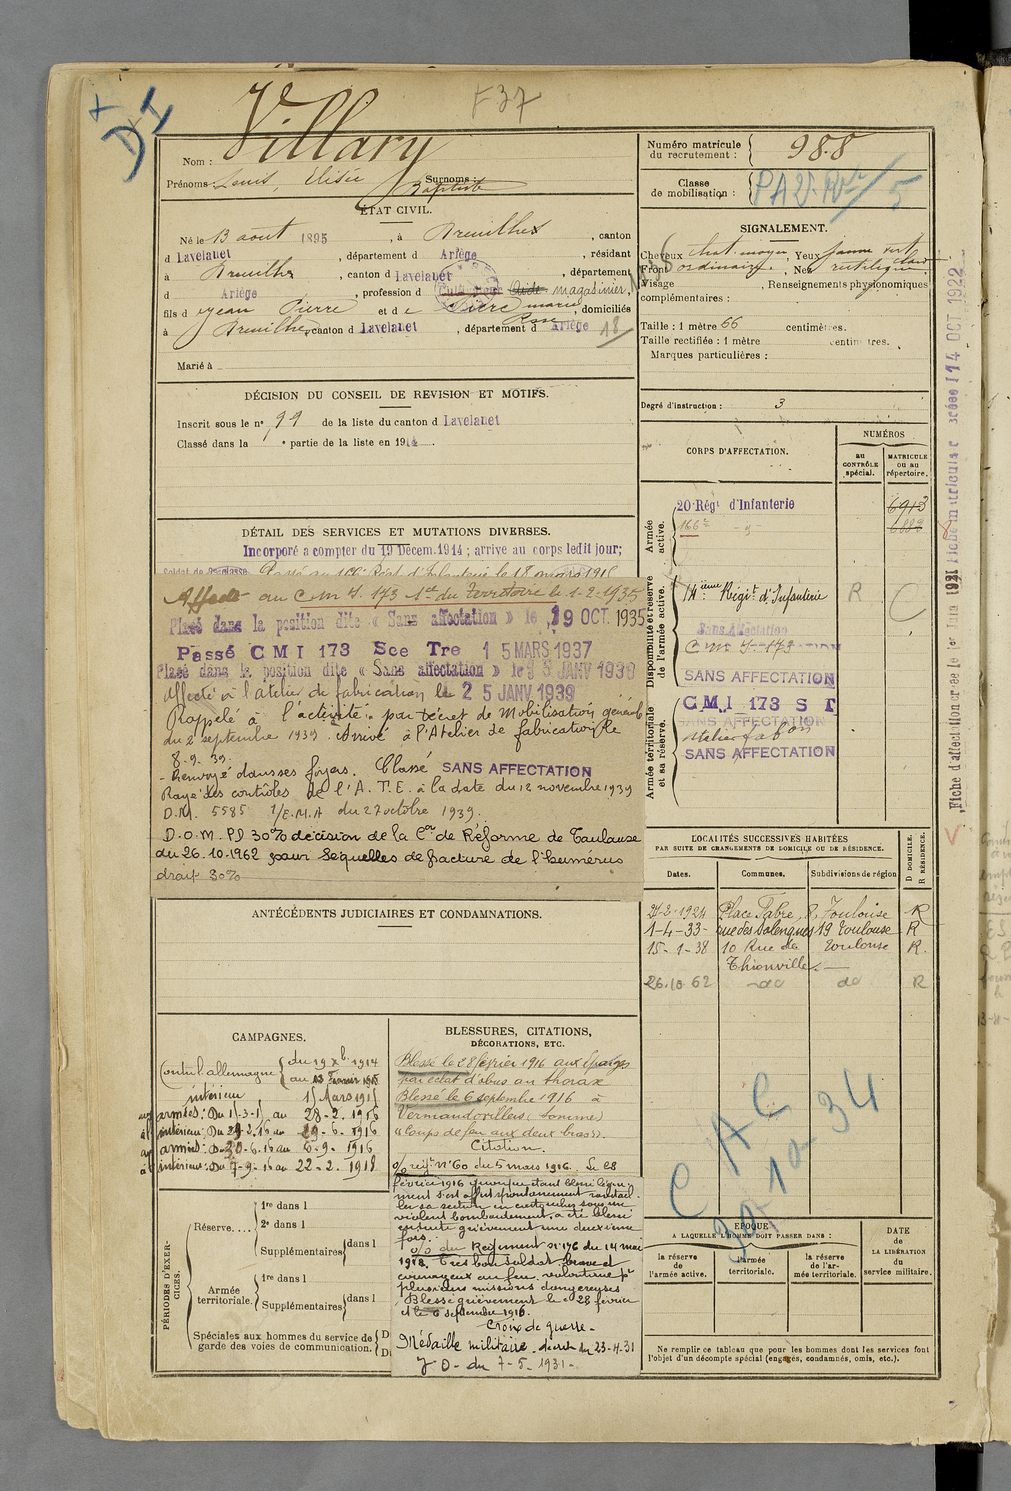 F37
Nom : Villary
Prénoms : Louis, Élisée Surnoms : Baptiste
ÉTAT CIVIL.
Né le 13 août 1895, à Dreuilhe, canton
d Lavelanet, département d Ariège, résidant
à Dreuilhe, canton d Lavelanet, département
d Ariège, profession d magasinier,
fils d Jean Pierre et d e marie Rose, domiciliés
à Dreuilhe, canton d Lavelanet, département d Ariège
18
Marié à
DÉCISION DU CONSEIL DE REVISION ET MOTIFS.
Inscrit sous le n° 99 de la liste du canton d Lavelanet
Classé dans la 1° partie de la liste en 1914
DÉTAIL DES SERVICES ET MUTATIONS DIVERSES.
Incorporé à compter du 19 Décem.1914 ; arrivé au corps ledit jour;
Soldat de 2e classe. Passé au 166e Régt d'Infanterie le 18 mars 1915
Affecté au C.M.I. 173 1er du Territoire le 1-2-1935
Placé dans la position dite « Sans affectation » le 19 OCT. 1935
Passé C M I 173 Sce Tre 1 5 MARS 1937
Placé dans la position dite « Sans affectation » le 5 JANV 1939
affecté à l'atelier de fabrication le 2 5 JANV 1939
Rappelé à l'activité par décret de Mobilisation générale
du 2 septembre 1939. Arrivé à l'Atelier de fabrication le
8.9.39.
- Renvoyé dans ses foyers. Classé SANS AFFECTATION
Rayé des contrôles de l'A.T.E. à la date du 12 novembre 1939
D.M. 5585 1/E.M.A du 27 octobre 1939.
D.O.M. PD 30% décision de la Con de Réforme de Toulouse
du 26.10.1962 pour Séquelles de fracture de l'humérus
droit 30%
ANTÉCÉDENTS JUDICIAIRES ET CONDAMNATIONS.
CAMPAGNES.
Contre l'allemagne du 19 Xb. 1914
au
intérieur 15 Mars 1915
aux armées : Du 15-3-15 au 28-2-1916
à l'intérieur : Du 29-2-16 au 29-6-1916
aux armées : Du 30-6-16 au 6-9-1916
à l'intérieur : Du 7-9-16 au 22-2-1918
PÉRIODES D'EXERCICES.
Réserve....
1re dans l
2e dans l
Supplémentaires dans l
Armée territoriale.
1re dans l
Supplémentaires dans l
Spéciales aux hommes du service de
garde des voies de communication.
BLESSURES, CITATIONS,
DÉCORATIONS, ETC.
Blessé le 28 février 1916 aux Eparges
par éclat d'obus au thorax
Blessé le 6 septembre 1916 à
Vermandovillers (Somme)
"Coups de feu aux deux bras".
Citation.
O/ régt N° 60 du 5 mars 1916. Le 28
février 1916 quoique étant blessé
ment s'est offert spontanément
ler sa section en sous un
violent bombardement, a été blessé
ensuite grièvement une deuxième
fois.
o/o du Régiment N° 176 du 14 mai
1918. Très bon soldat, brave et
courageux au feu, volontaire pr
plusieurs missions dangereuses
Blessé grièvement le 28 février
et le 6 septembre 1916.
Croix de guerre -
Médaille militaire. décret du 23-4-31
J O - du 7-5-1931 -
Numéro matricule
du recrutement : 988
Classe
de mobilisation :
5
SIGNALEMENT.
Cheveux chat. moyen, Yeux jaune vert
Front ordinaire, Nez rectiligne
Visage , Renseignements physionomiques
complémentaires :
Taille : 1 mètre 66 centimètres.
Taille rectifiée : 1 mètre centimètres.
Marques particulières :
Degré d'instruction : 3
CORPS D'AFFECTATION.
NUMÉROS
au CONTRÔLE spécial.
MATRICULE ou au répertoire.
Armée active.
20e Régt d'Infanterie 6913
166e -"- 6882
Disponibilité et réserve de l'armée active.
14ième Régit d'Infanterie R
Sans Affectation
C.m.I-173
SANS AFFECTATION
Armée territoriale et sa réserve.
C M I 173 S T
SANS AFFECTATION
Atelier fabon
SANS AFFECTATION
LOCALITÉS SUCCESSIVES HABITÉES
PAR SUITE DE CHANGEMENTS DE DOMICILE OU DE RÉSIDENCE.
Dates. Communes. Subdivisions de région D DOMICILE. R RÉSIDENCE.
24-2-1924 Place Fabre, 8, Toulouse R
1-4-33- rue des Salenques 19 Toulouse R
15-1-38 10 Rue de Toulouse R.
Thionville.
26.10.62 do do R
C A C
30-10-34
ÉPOQUE
A LAQUELLE L'HOMME DOIT PASSER DANS :
la réserve de l'armée active.
l'armée territoriale.
la réserve de l'armée territoriale.
DATE de LA LIBÉRATION du service militaire.
Ne remplir ce tableau que pour les hommes dont les services font
l'objet d'un décompte spécial (engagés, condamnés, omis, etc.).
Fiche d'affectation créée le 1er Juin 1921 Fiche matricule créée le 14 OCT 1922